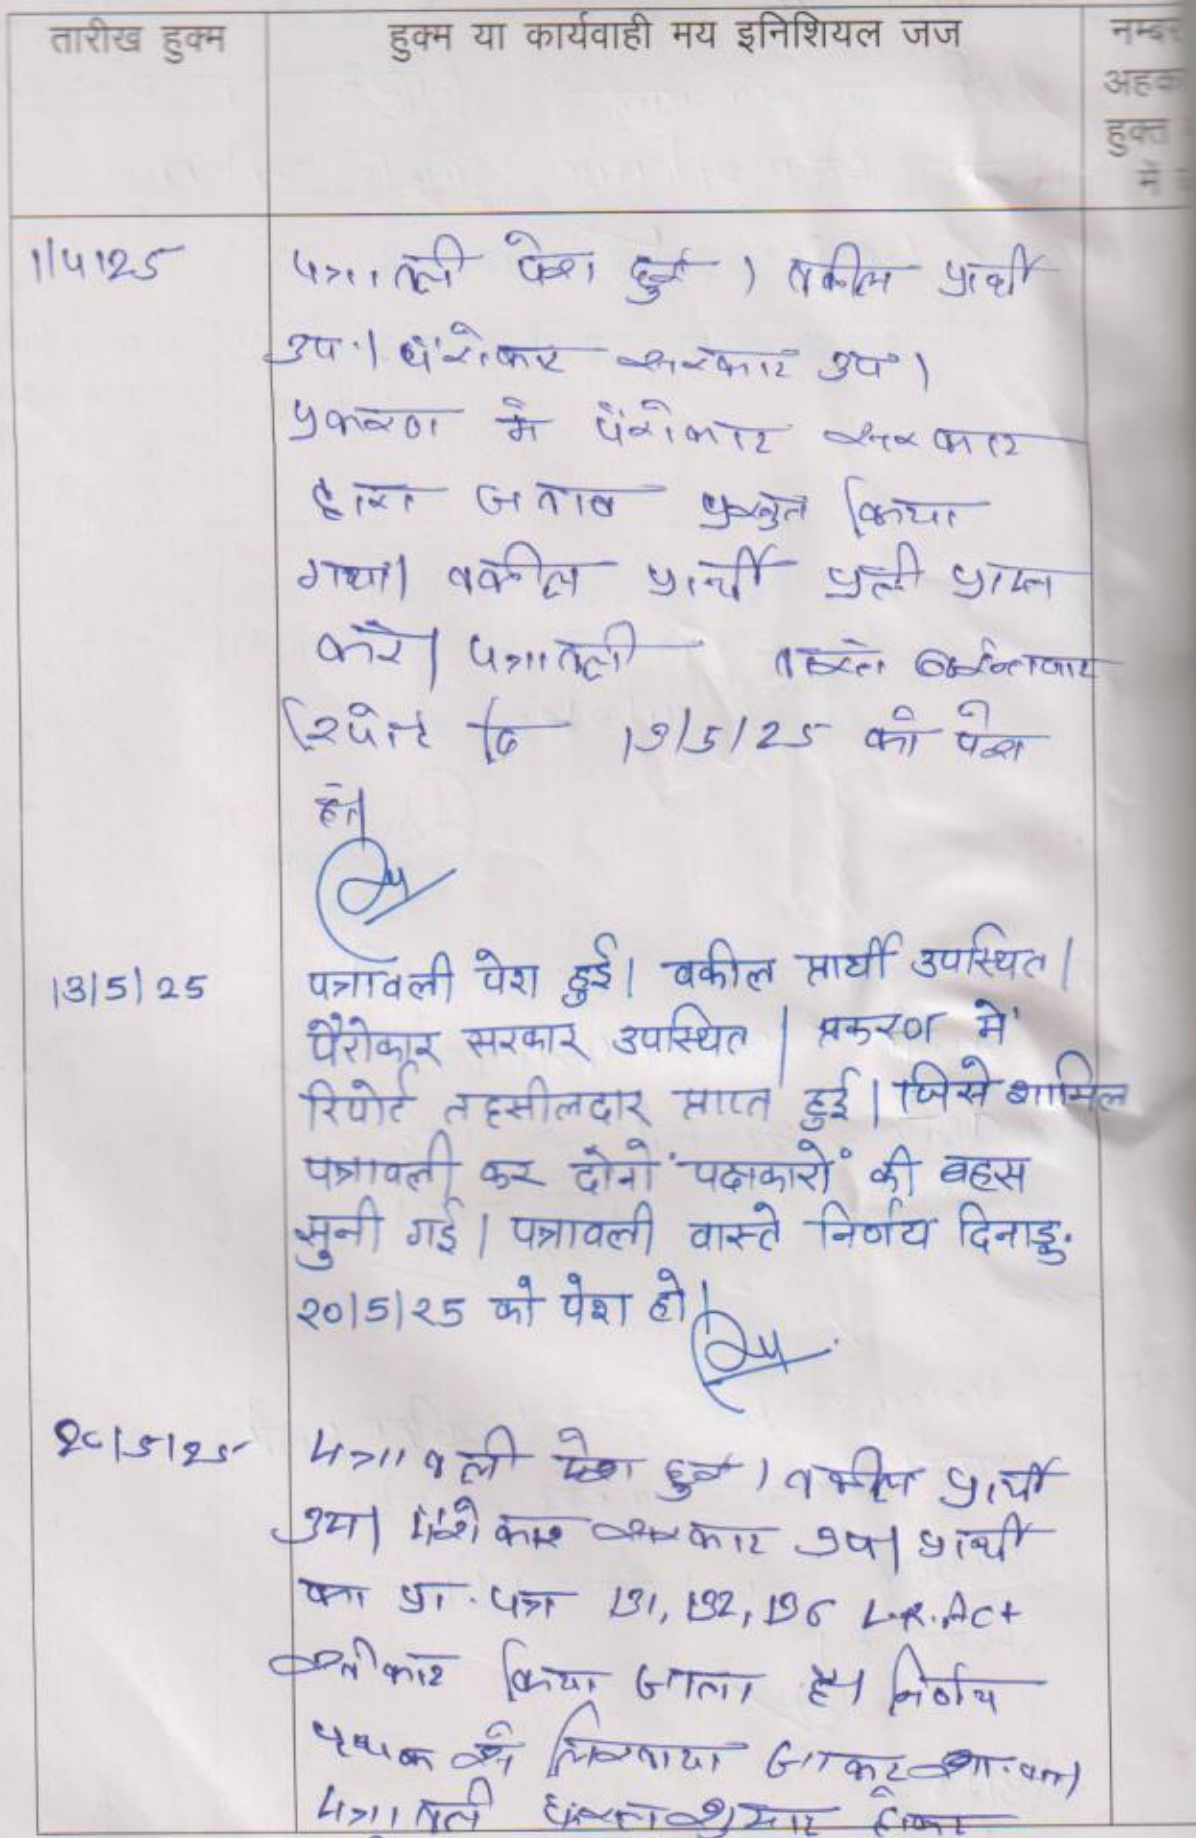 तारीख हुक्म
हुक्म या कार्यवाही मय इनिशियल जज
नम्बर
अहक
हुक्त
में
1/4/25
पत्रावली पेश हुई। वकील प्रार्थी
उप.। पैरोकार सरकार उप।
प्रकरण में पैरोकार सरकार
द्वारा जवाब प्रस्तुत किया
गया। वकील प्रार्थी प्रति प्राप्त
करे। पत्रावली वास्ते इन्तजार
रिपोर्ट दि 13/5/25 को पेश
हो।
13/5/25
पत्रावली पेश हुई। वकील प्रार्थी उपस्थित।
पैरोकार सरकार उपस्थित। प्रकरण में
रिपोर्ट तहसीलदार प्राप्त हुई। जिसे शामिल
पत्रावली कर दोनों पक्षकारों की बहस
सुनी गई। पत्रावली वास्ते निर्णय दिनाङ्क
20/5/25 को पेश हो।
20/5/25
पत्रावली पेश हुई। वकील प्रार्थी
उप। पैरोकार सरकार उप। प्रार्थी
का प्रा. पत्र 131, 132, 136 L.R. Act
स्वीकार किया जाता है। निर्णय
पृथक से लिखाया जाकर
पत्रावली फैसल शुमार होकर